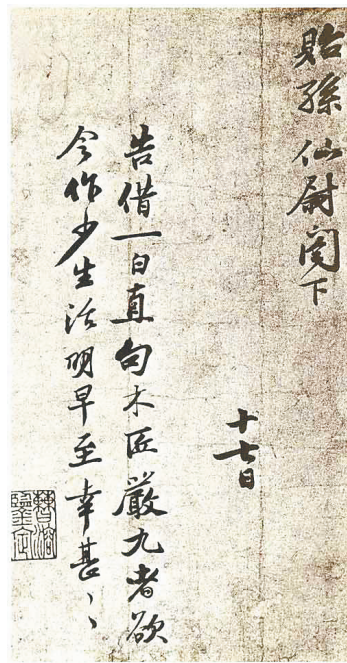 貽孫仙尉閣下
十七日
告借一日直句木匠嚴九者欲
令作少生活明早至幸甚〻